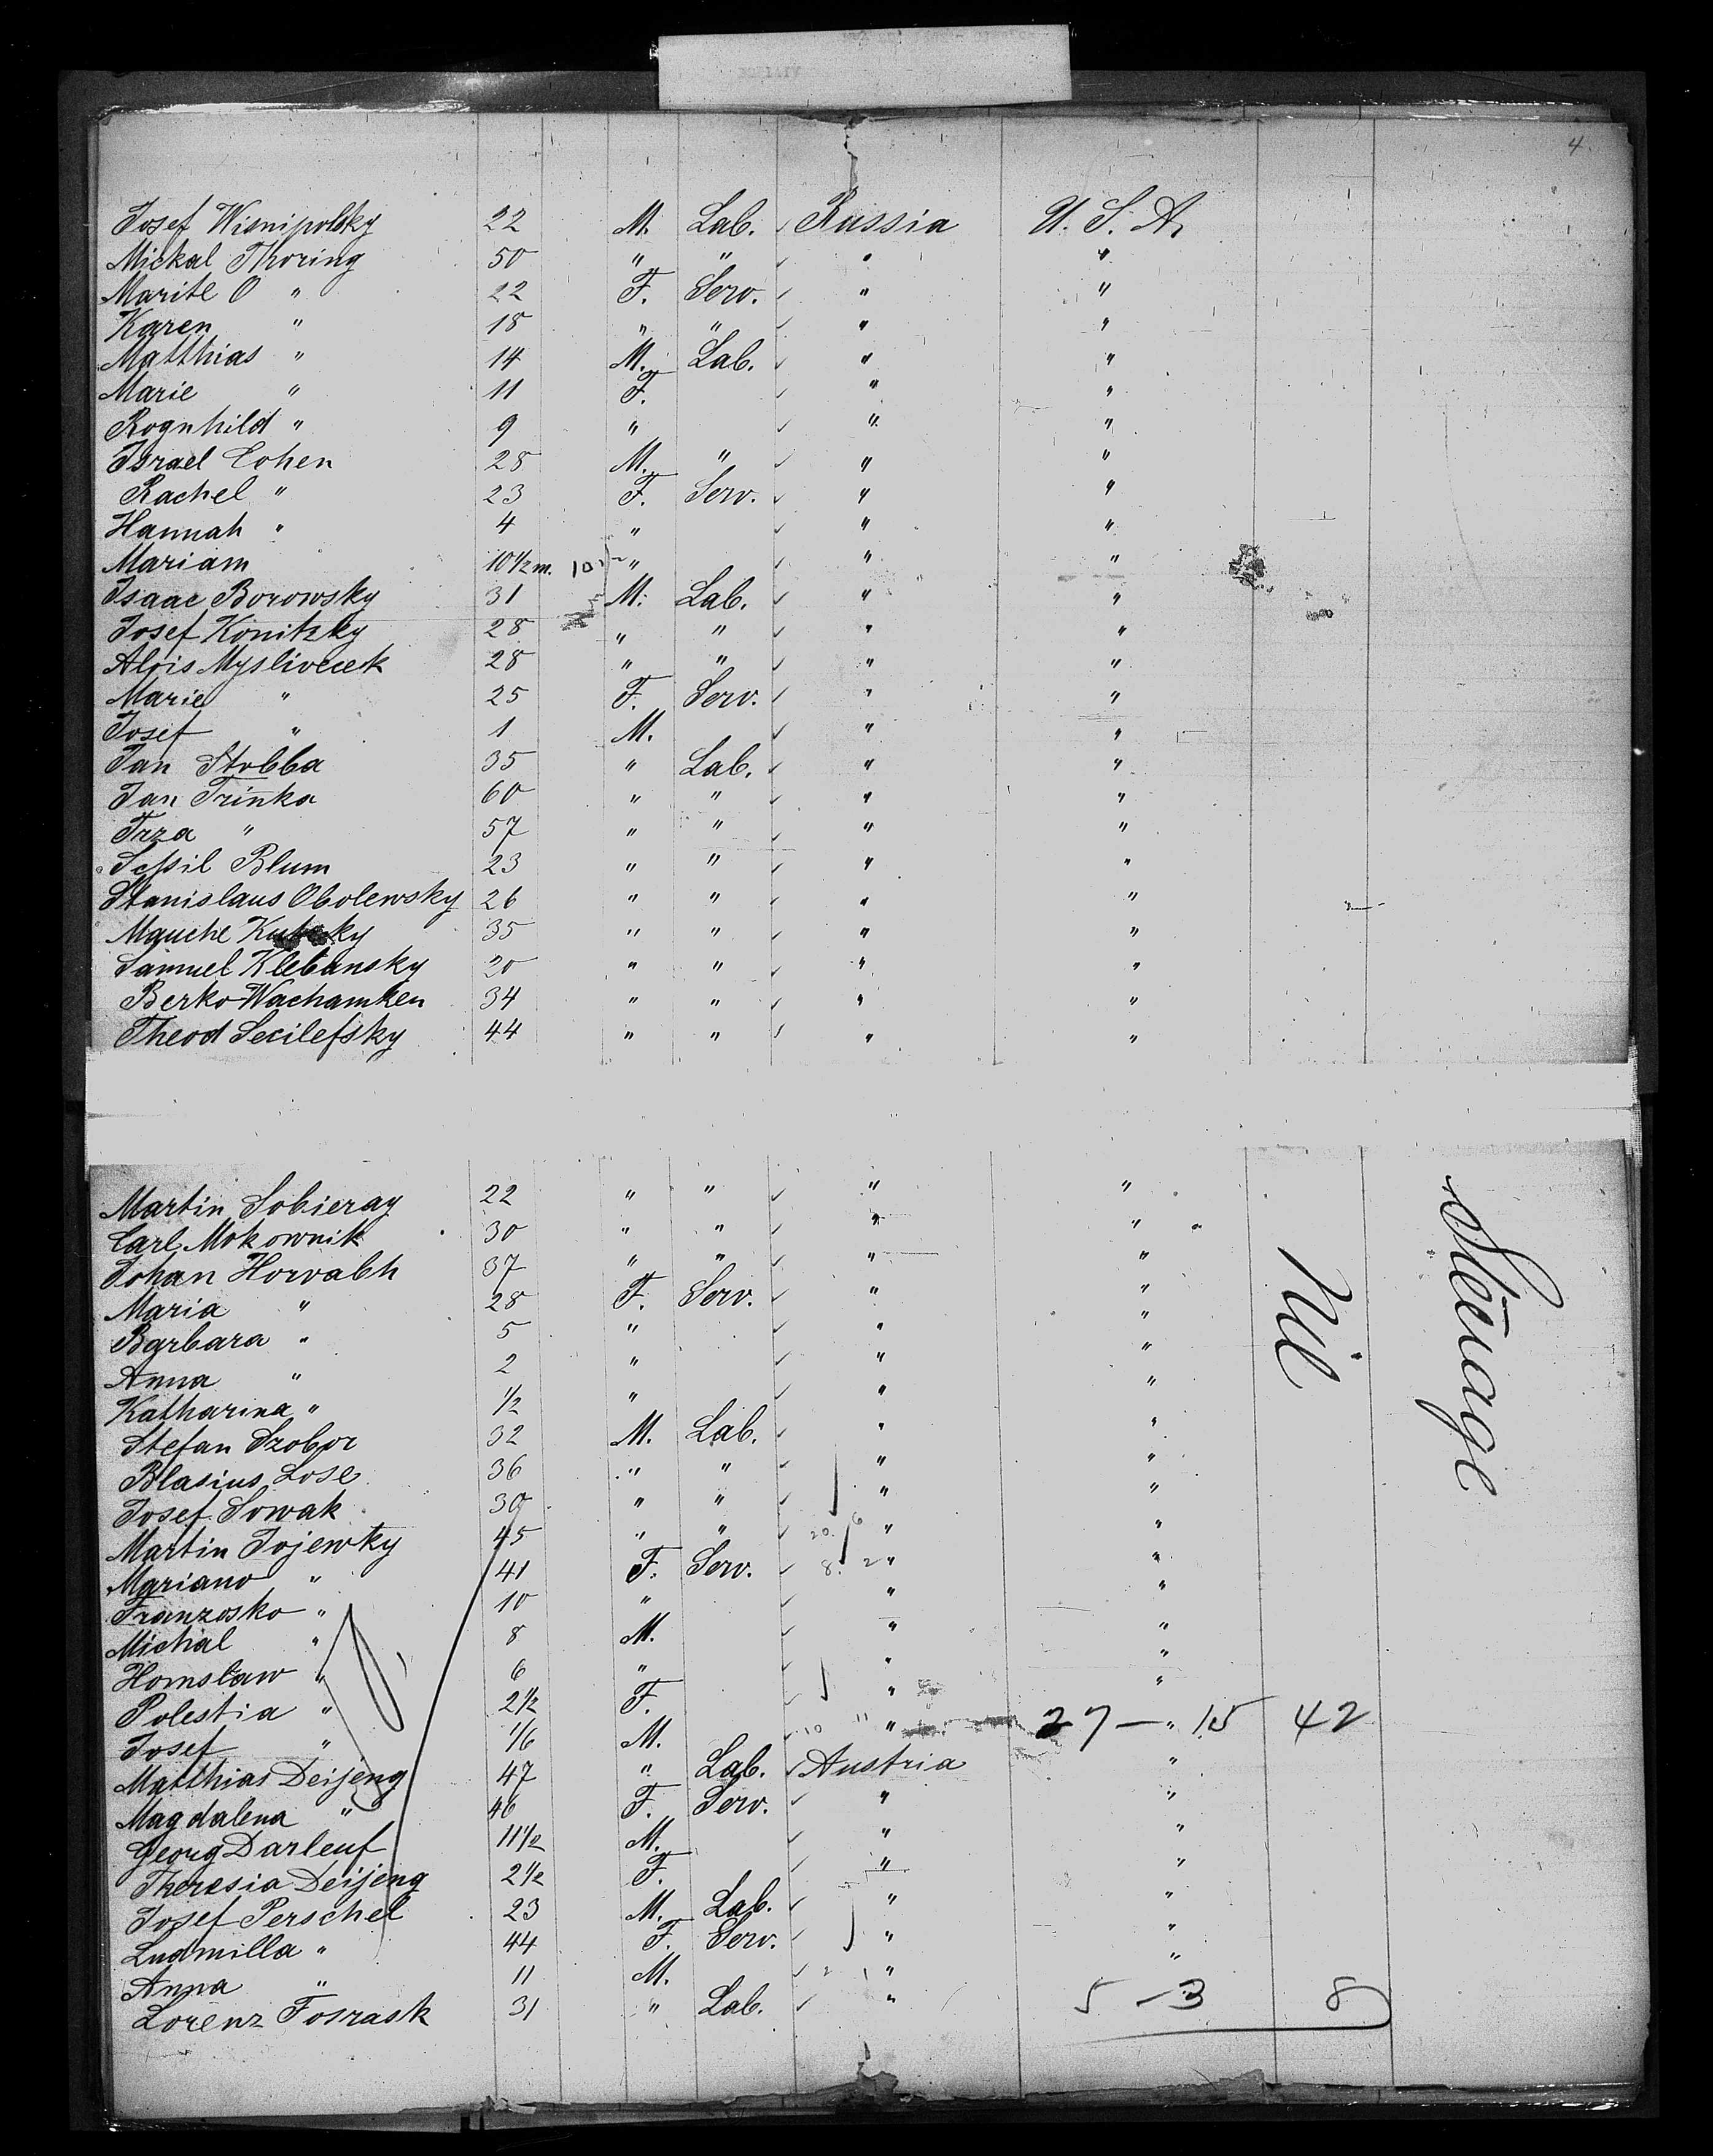 4
Josef Wisnipolsky 22 M. Lab. ✓ Russia U. S. A.
Mickal Thoring 50 " " ✓ " "
Marite O " 22 F. Serv. ✓ " "
Karen " 18 " " ✓ " "
Matthias " 14 M. Lab. ✓ " "
Marie " 11 F. ✓ " "
Rognhild " 9 " ✓ " "
Israel Cohen 28 M. " ✓ " "
Rachel " 23 F. Serv. ✓ " "
Hannah " 4 " ✓ " "
Mariam 10 1/2 m. 10 " ✓ " "
Isaac Borowsky 31 M. Lab. ✓ " "
Josef Konitzky 28 " " ✓ " "
Alois Myslivecek 28 " " ✓ " "
Marie " 25 F. Serv. ✓ " "
Josef " 1 M. ✓ " "
Jan Stobba 35 " Lab. ✓ " "
Jan Trinka 60 " " ✓ " "
Trza " 57 " " ✓ " "
Blum 23 " " ✓ " "
Stanislaus Obolewsky 26 " " ✓ " "
Mauche 35 " " ✓ " "
Samuel Klebansky 20 " " ✓ " "
Berko Wachamken 34 " " ✓ " "
Theod Secilefsky 44 " " ✓ " "
Martin Sobieray 22 " " ✓ " "
Carl Mokownik 30 " " ✓ " "
Johan Horvabh 37 " " ✓ " "
Maria " 28 F. Serv. ✓ " "
Barbara " 5 " ✓ " "
Anna " 2 " ✓ " "
Katharina " 1/2 " ✓ " "
Stefan Szobor 32 M. Lab. ✓ " "
Blasius Lose 36 " " ✓ " "
Josef Sowak 30 " " ✓ " "
Martin Jojewky 45 " " ✓ 20. 6 " "
Mariano " 41 F. Serv. ✓ 8. 2 " "
Franzosko " 10 " ✓ " "
Michal " 8 M. ✓ " "
Homslaw " 6 " ✓ " "
Polestia " 2 1/2 F. ✓ " "
Josef " 1/6 M. 10 11 " 27 — " 15 42
Matthias Deijeng 47 " Lab. ✓ Austria "
Magdalena " 46 F. Serv. ✓ " "
Georg Darleuf 11 1/2 M. ✓ " "
Theresia Deijeng 2 1/2 F. ✓ " "
Josef Perschel 23 M. Lab. ✓ " "
Ludmilla " 44 F. Serv. ✓ " "
Anna " 11 M. ✓ " "
Lorenz Fosrask 31 " Lab. ✓ " 5 - 3 8
Nil
Steerage